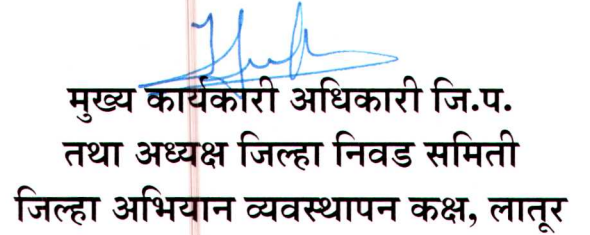 मुख्य कार्यकारी अधिकारी जि.प.
तथा अध्यक्ष जिल्हा निवड समिती
जिल्हा अभियान व्यवस्थापन कक्ष, लातूर